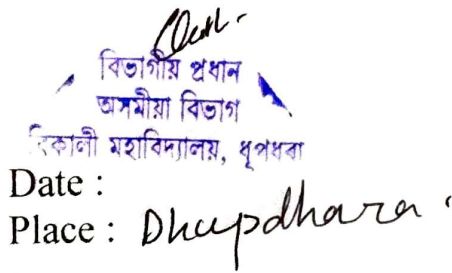 বিভাগীয় প্ৰধান
অসমীয়া বিভাগ
বিকালী মহাবিদ্যালয়, ধূপধৰা
Date :
Place : Dhupdhara.